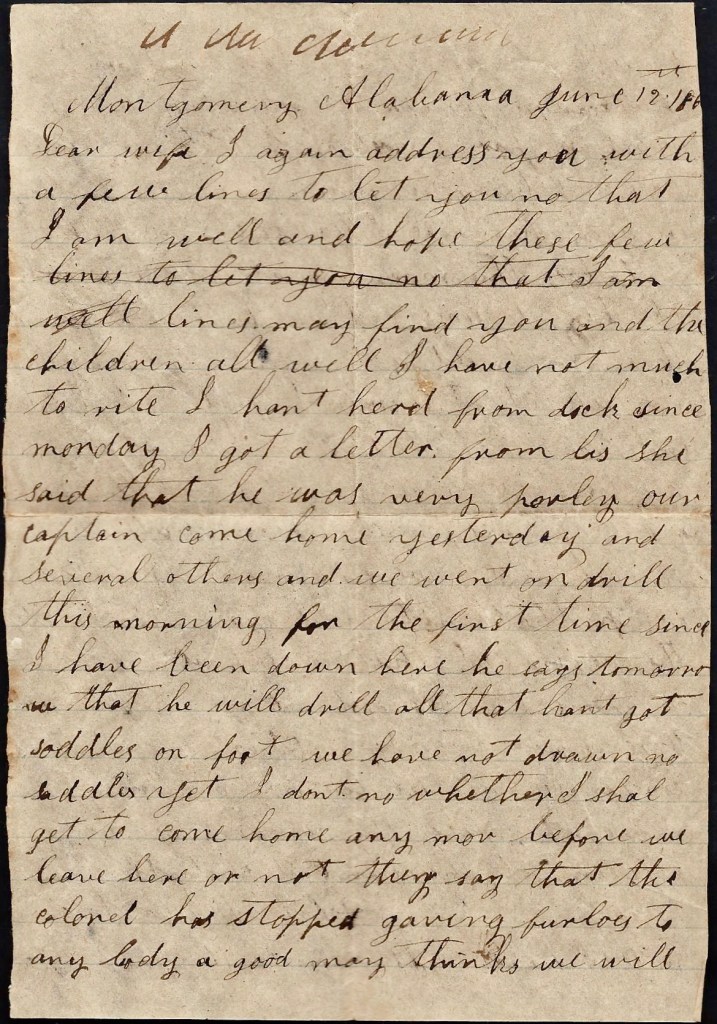 Montgomery Alabama June 12th 186
Dear wife I again address you with
a few lines to let you no that
I am well and hope these few
lines to let you no that I am
well lines may find you and the
children all well I have not much
to rite I hant herd from dock since
monday I got a letter from lis she
said that he was very porley our
captain come home yesterday and
several others and we went on drill
this morning for the first time since
I have been down here he says tomorro
w that he will drill all that hant got
saddles on foot we have not drawn no
saddles yet I dont no whether I shal
get to come home any mor before we
leave here or not they say that the
colonel has stopped gaving furloes to
any body a good may thinks we will